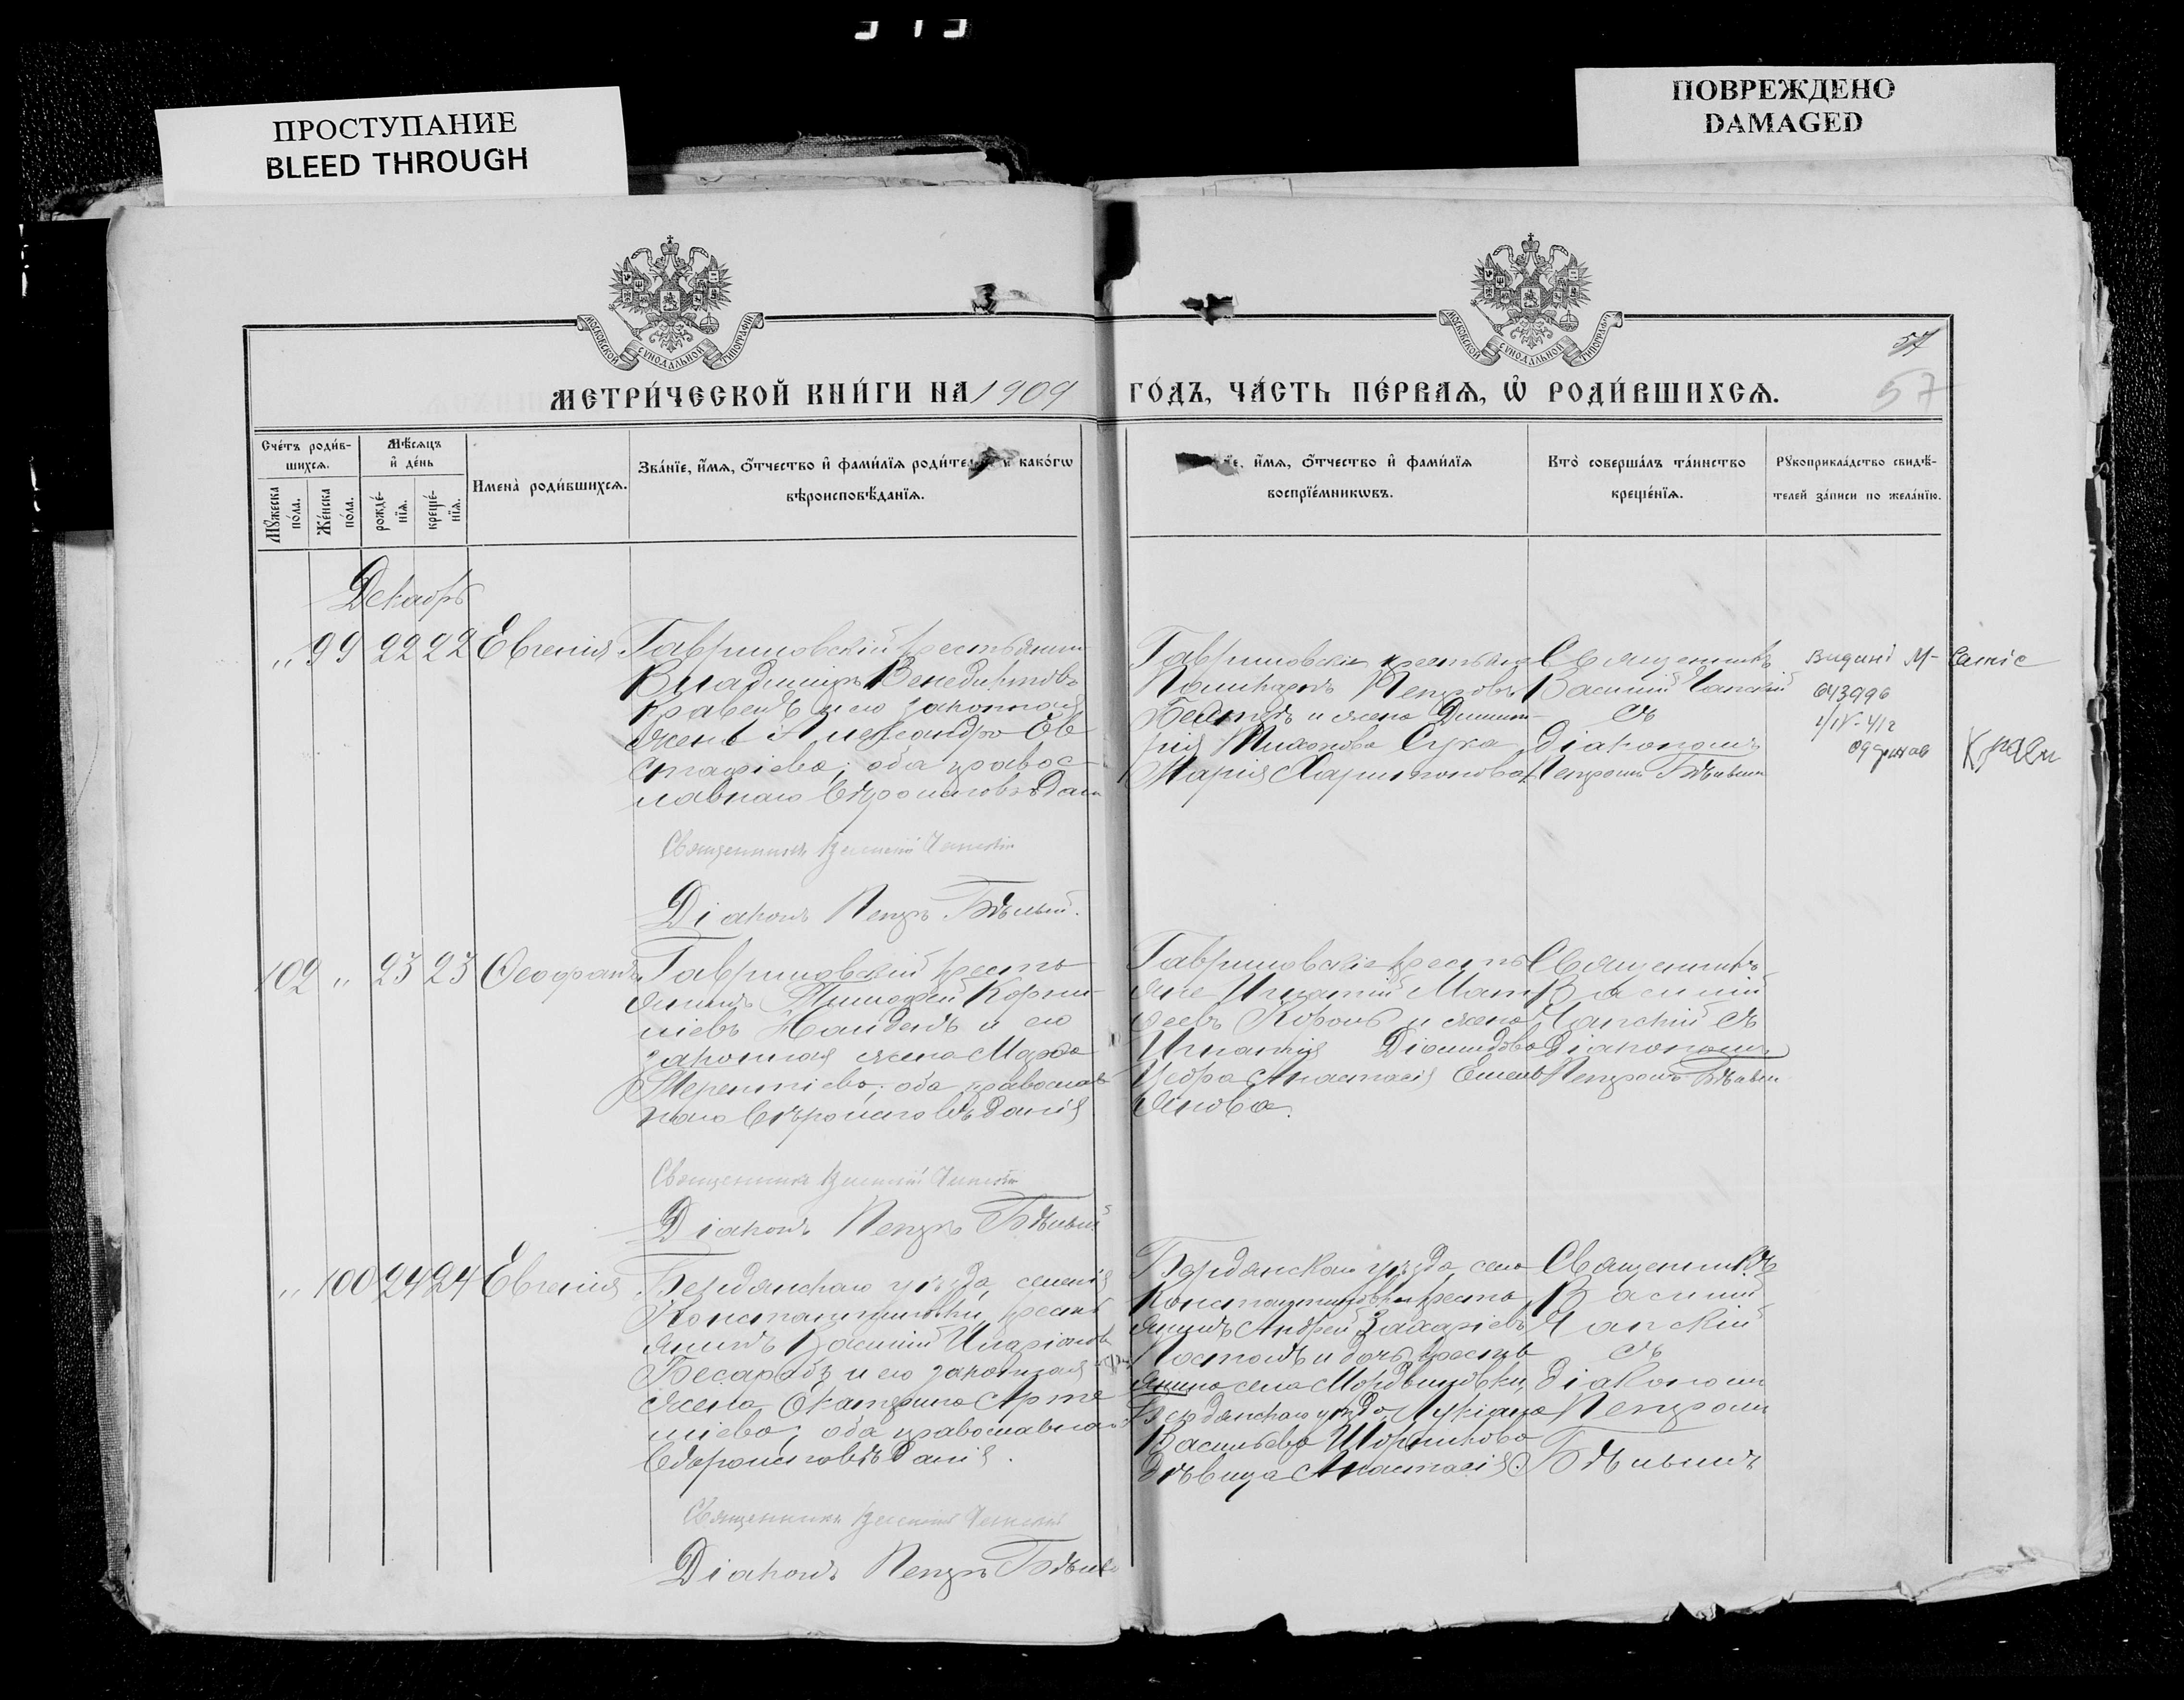 ПРОСТУПАНИЕ
BLEED THROUGH
ПОВРЕЖДЕНО
DAMAGED
МОСКОВСКОЙ СУНОДАЛЬНОЙ ТИПОГРАФІИ
МОСКОВСКОЙ СУНОДАЛЬНОЙ ТИПОГРАФІИ
57
57
МЕТРИ́ЧЕСКОЙ КНИ́ГИ НА 1909 ГО́ДЪ, ЧА́СТЬ ПЕ́РВАѦ, Ѡ РОДИ́ВШИХСѦ.
Сче́тъ роди́в-
шихсѧ.
Мꙋ́жеска по́ла.
Же́нска по́ла.
Мѣ́сѧцъ
и де́нь
рожде́-нїѧ.
креще́-нїѧ.
Имена̀ роди́вшихсѧ.
Зва́нїе, и́мѧ, о́тчество и фами́лїѧ роди́те и како́гѡ
вѣроисповѣ́данїѧ.
їе, и́мѧ, о́тчество и фами́лїѧ
воспрїе́мникѡвъ.
Кто̀ соверша́лъ та́инство
креще́нїѧ.
Рꙋкоприкла́дство свидѣ́-
телей за́писи по жела́нїю.
Декабрь
" 99 22 22 Евгенія
Гавриловскій крестьянинъ
Владиміръ Венедиктовъ
Кравецъ и его законная
жена Александра Ев
стафіева; оба правос-
лавнаго вѣроисповѣдан
Священникъ Василій Чапскій
Діаконъ Петръ Бѣлый.
Гавриловскіе крестьяне
Петровъ
и жена Димит-
рія Тихонова Сука
Марія Харитонова
Священникъ
Василій Чапскій
съ
діакономъ
Петромъ Бѣлымъ
643996
102 " 23 23 Ѳеофанъ
Гавриловскій кресть
янинъ Тимофей Корни-
ліевъ Найденъ и его
законная жена Марѳа
Терентіева; оба православ
наго вѣроисповѣданія
Священникъ Василій Чапскій
Діаконъ Петръ Бѣлый
Гавриловскіе кресть
яне Игнатій Матв
феевъ Король и жена
Игнатія Діомидова
Анастасія Емель
янова.
Священникъ
Василій
Чапскій съ
діакономъ
Петромъ Бѣлым
" 100 24 24 Евгенія
Бердянскаго уѣзда, селенія
Константиновки, кресть
янинъ Василій Иларіонов
Бесарабъ и его законная
жена Екатерина Арте
міева; оба православнаго
вѣроисповѣданія.
Священникъ Василій Чапскій
Діаконъ Петръ Бѣлый
Бердянскаго уѣзда, села
Константиновки кресть
янинъ Андрей Захаріевъ
и дочь кресть
янина села Мордвиновки,
Бердянскаго уѣзда, Лукіана
Васильева
дѣвица Анастасія.
Священникъ
Василій
Чапскій
съ
діакономъ
Петромъ
Бѣлымъ